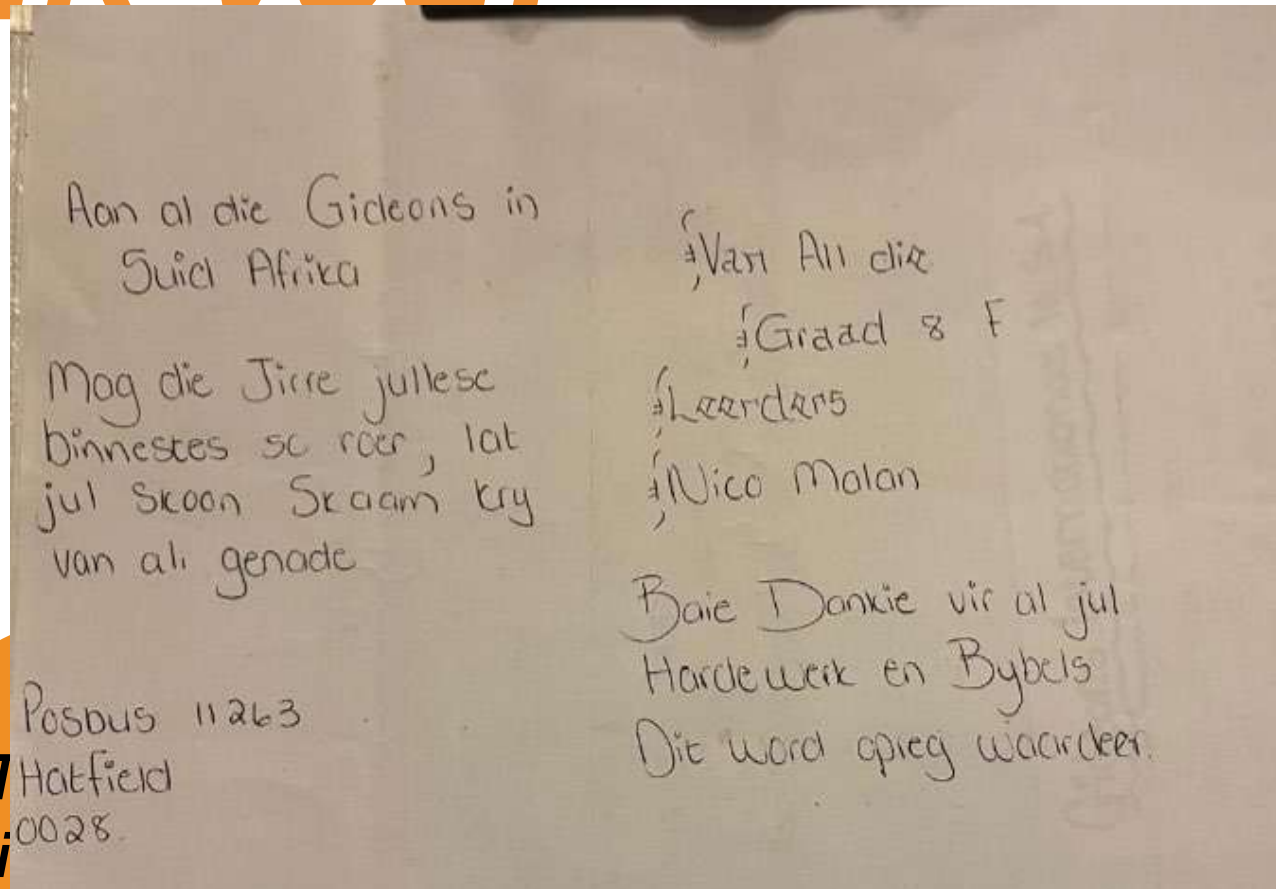 Aan al die Gideons in
Suid Afrika
Mag die Jirre jullese
binnestes so roer, lat
jul skoon Skaam kry
van al genade
Posbus 11263
Hatfield
0028.
Van All die
Graad 8 F
Leerders
Nico Malan
Baie Dankie vir al jul
Hardewerk en Bybels
Dit word opreg waardeer.